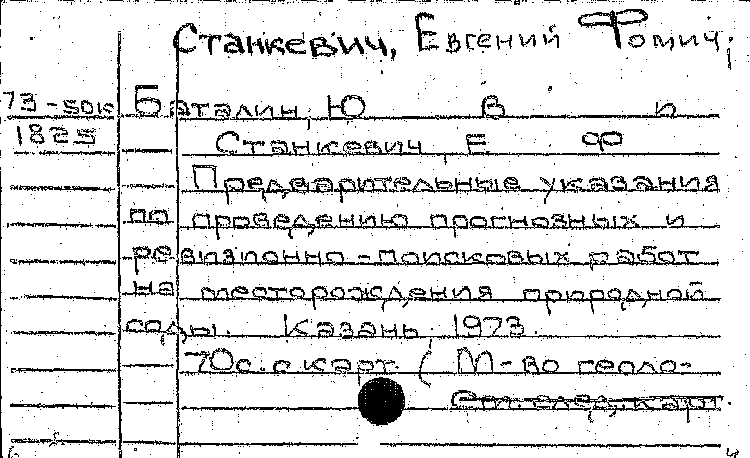 Станкевич, Евгений Фомич;
73-50к Баталин, Ю В и
1825 Станкевич, Е Ф
Предварительные указания
по проведению прогнозных и
ревизионно-поисковых работ
на месторождения природной
соды. Казань. 1973.
70с. с карт. (М-во геоло-
См. след. карт.